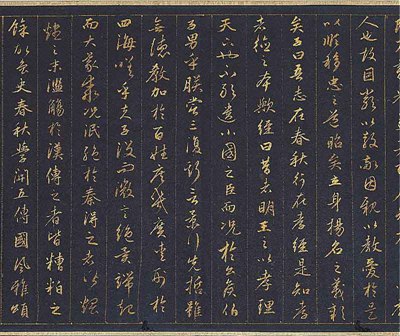 人也故因嚴以教敬因親以教愛於是
以順移忠之道昭矣立身揚名之義彰
矣子曰吾志在春秋行在孝經是知孝
者德之本歟經曰昔者明王之以孝理
天下也不敢遺小國之臣而況於公侯伯
子男乎朕嘗三復斯言景行先哲雖
無德教加於百姓庶幾廣愛形於
四海嗟乎夫子沒而微言絕異端起
而大義乖況泯絕於秦得之者皆煨
燼之末濫觴於漢傳之者皆糟粕之
餘故魯史春秋學開五傳國風雅頌